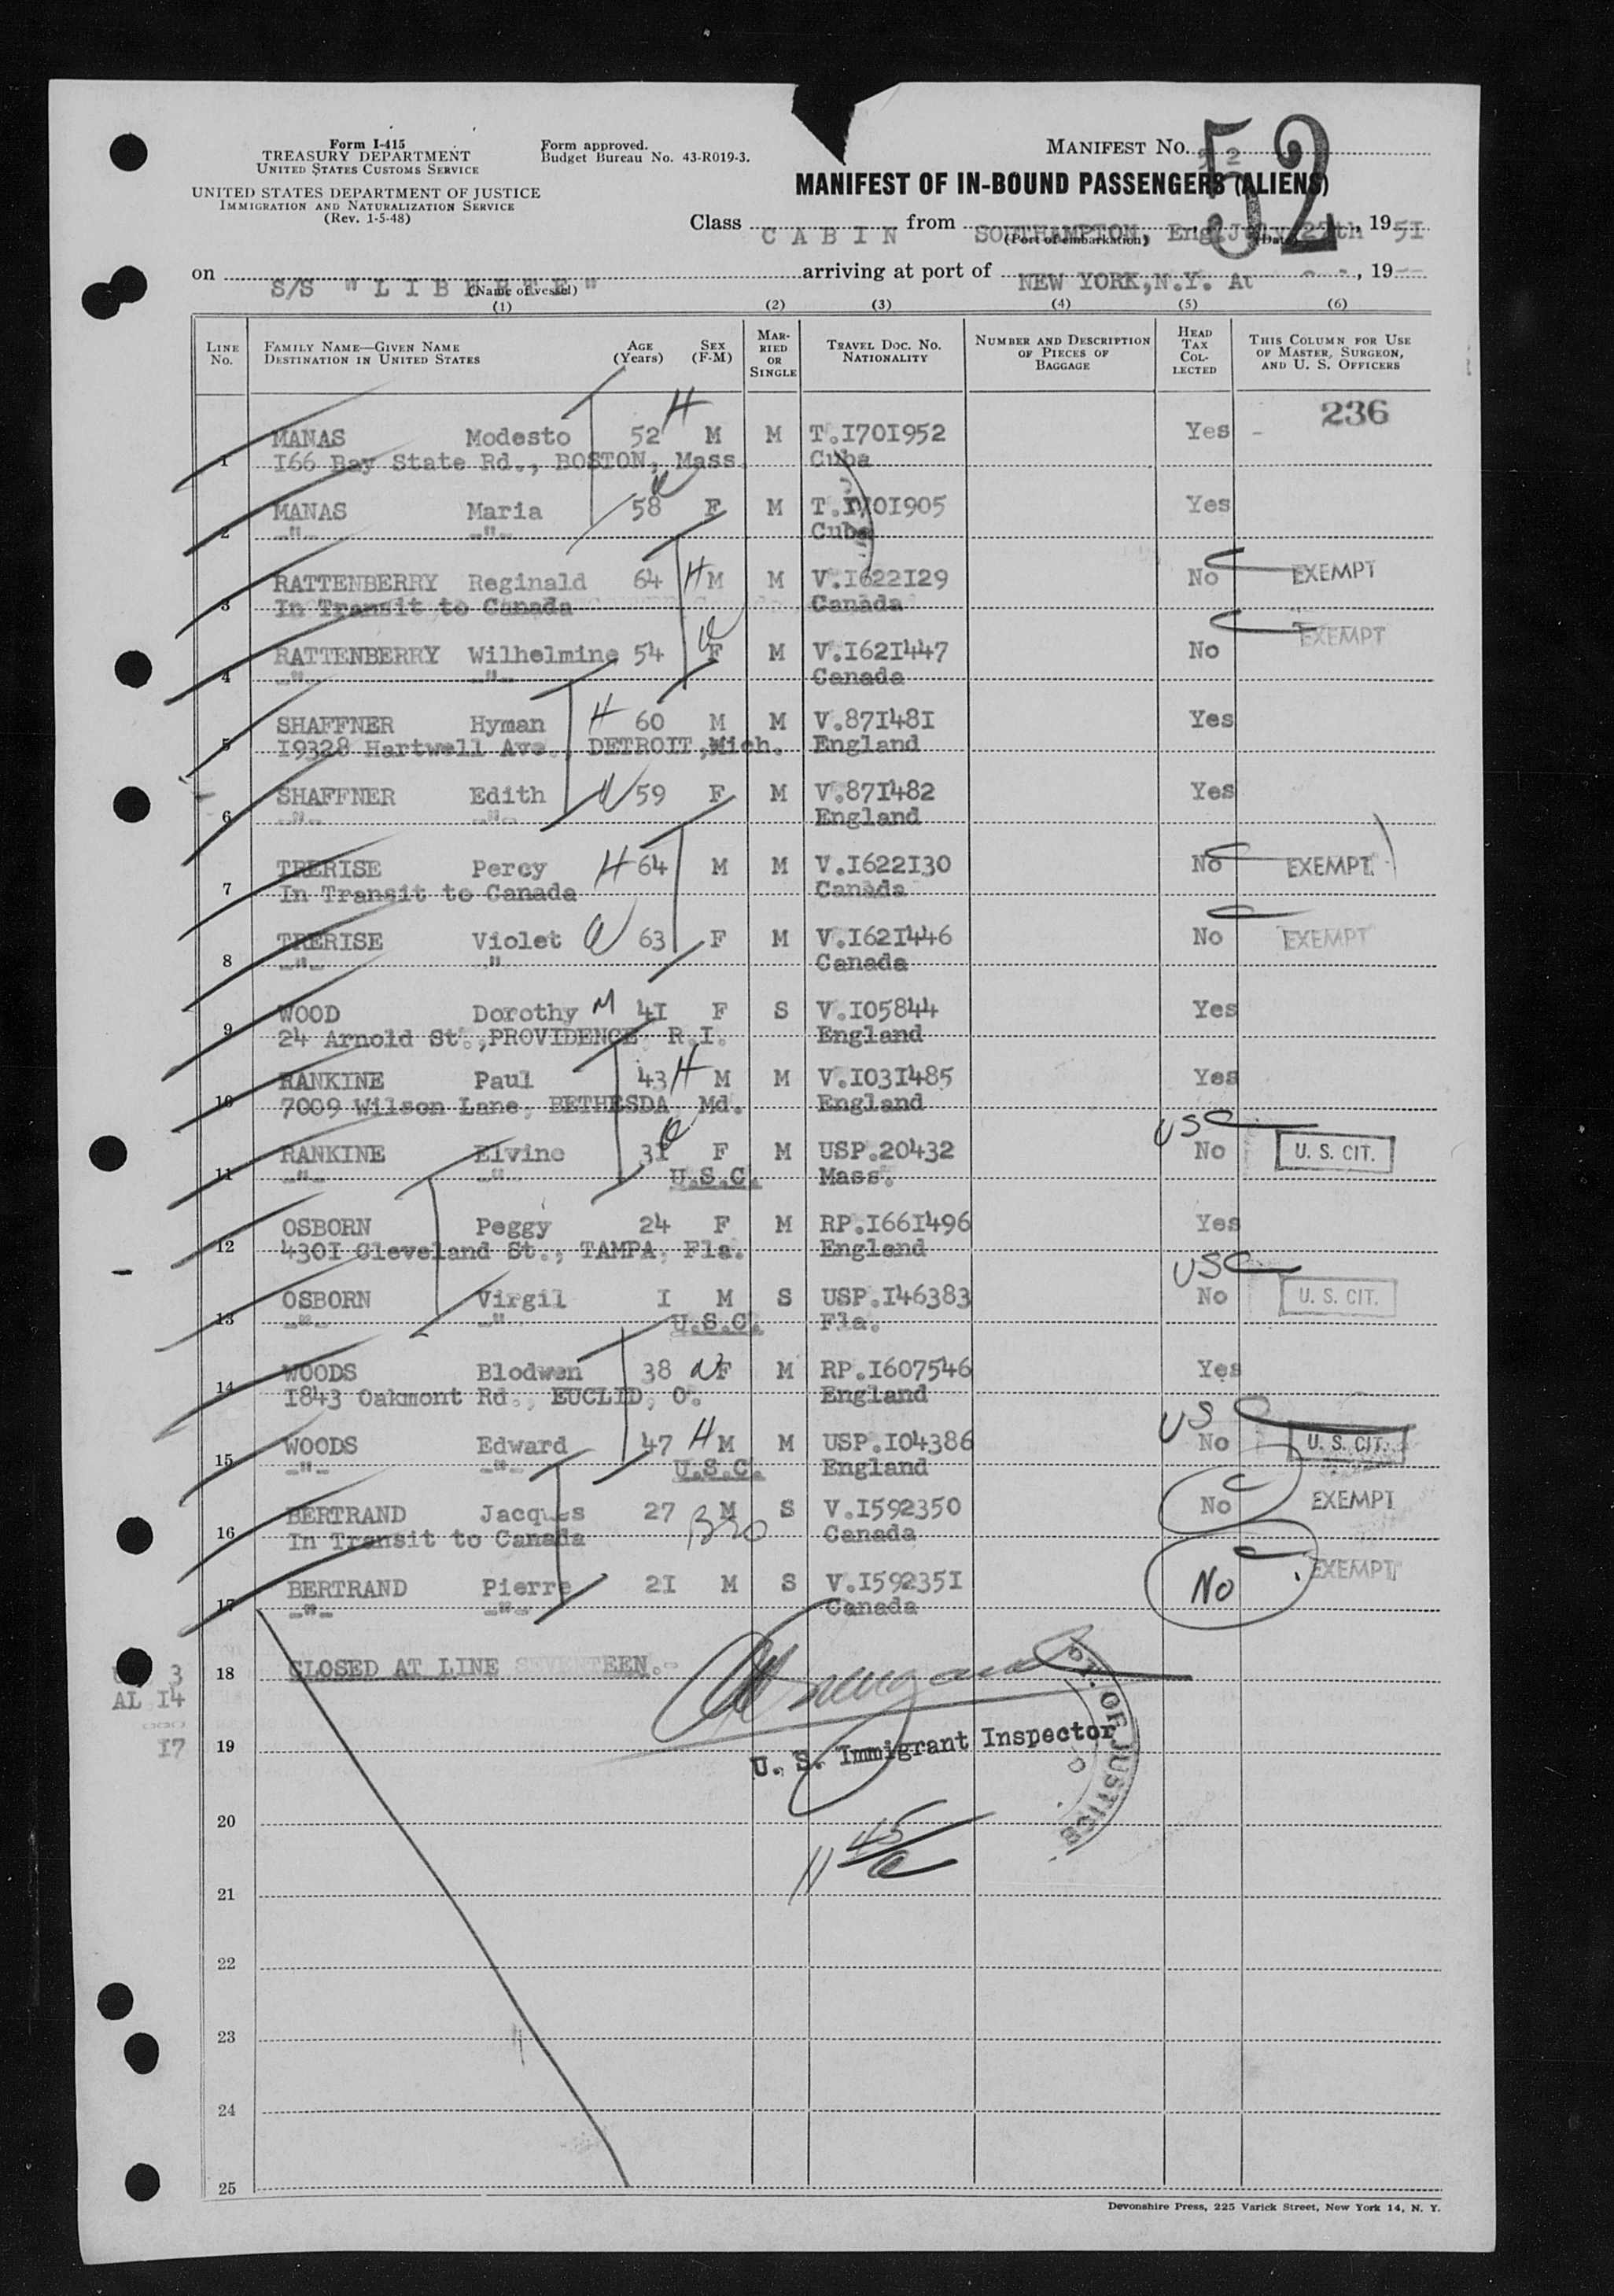 Form I-415
TREASURY DEPARTMENT
UNITED STATES CUSTOMS SERVICE
UNITED STATES DEPARTMENT OF JUSTICE
IMMIGRATION AND NATURALIZATION SERVICE
(Rev. 1-5-48)
Form approved.
Budget Bureau No. 43-R019-3.
MANIFEST NO. 52
52
MANIFEST OF IN-BOUND PASSENGERS (ALIENS)
Class CABIN from SOUTHAMPTON, Eng. July 27th, 1951
(Port of embarkation) (Date)
on S/S "LIBERTE" arriving at port of NEW YORK, N.Y. , 19
(Name of vessel)
(1) (2) (3) (4) (5) (6)
LINE NO. FAMILY NAME—GIVEN NAME DESTINATION IN UNITED STATES AGE (YEARS) SEX (F-M) MARRIED OR SINGLE TRAVEL DOC. NO. NATIONALITY NUMBER AND DESCRIPTION OF PIECES OF BAGGAGE HEAD TAX COLLECTED THIS COLUMN FOR USE OF MASTER, SURGEON, AND U. S. OFFICERS
236
MANAS Modesto 52 H M M T.I701952 Yes -
1 I66 Bay State Rd., BOSTON, Mass. Cuba
MANAS Maria 58 F M T.I701905 Yes
2 -"- -"- Cuba
RATTENBERRY Reginald 64 H M M V.I622I29 No EXEMPT
3 In Transit to Canada Canada
RATTENBERRY Wilhelmine 54 F M V.I62I447 No EXEMPT
4 -"- -"- Canada
SHAFFNER Hyman H 60 M M V.87I48I Yes
5 I9328 Hartwell Ave., DETROIT, Mich. England
SHAFFNER Edith 59 F M V.87I482 Yes
6 -"- -"- England
TRERISE Percy H 64 M M V.I622I30 No EXEMPT
7 In Transit to Canada Canada
TRERISE Violet 63 F M V.I62I446 No EXEMPT
8 -"- " Canada
WOOD Dorothy M 4I F S V.I05844 Yes
9 24 Arnold St., PROVIDENCE R.I. England
RANKINE Paul 43 H M M V.I03I485 Yes
10 7009 Wilson Lane, BETHESDA, Md. England
USC
RANKINE Elvine 3I F M USP.20432 No U. S. CIT.
11 -"- -"- U.S.C. Mass.
OSBORN Peggy 24 F M RP.I66I496 Yes
12 430I Cleveland St., TAMPA, Fla. England
USC
OSBORN Virgil I M S USP.I46383 No U. S. CIT.
13 -"- -"- U.S.C. Fla.
WOODS Blodwen 38 F M RP.I607546 Yes
14 I843 Oakmont Rd., EUCLID, O. England
USC
WOODS Edward 47 H M M USP.I04386 No U. S. CIT.
15 -"- -"- U.S.C. England
BERTRAND Jacques 27 M S V.I592350 No EXEMPT
16 In Transit to Canada Bro Canada
BERTRAND Pierre 2I M S V.I59235I No EXEMPT
17 -"- -"- Canada
18 CLOSED AT LINE SEVENTEEN.-
3
AL I4
I7
19
U. S. Immigrant Inspector
OF JUSTICE
20
11 45/a
21
22
23
24
25
Devonshire Press, 225 Varick Street, New York 14, N. Y.